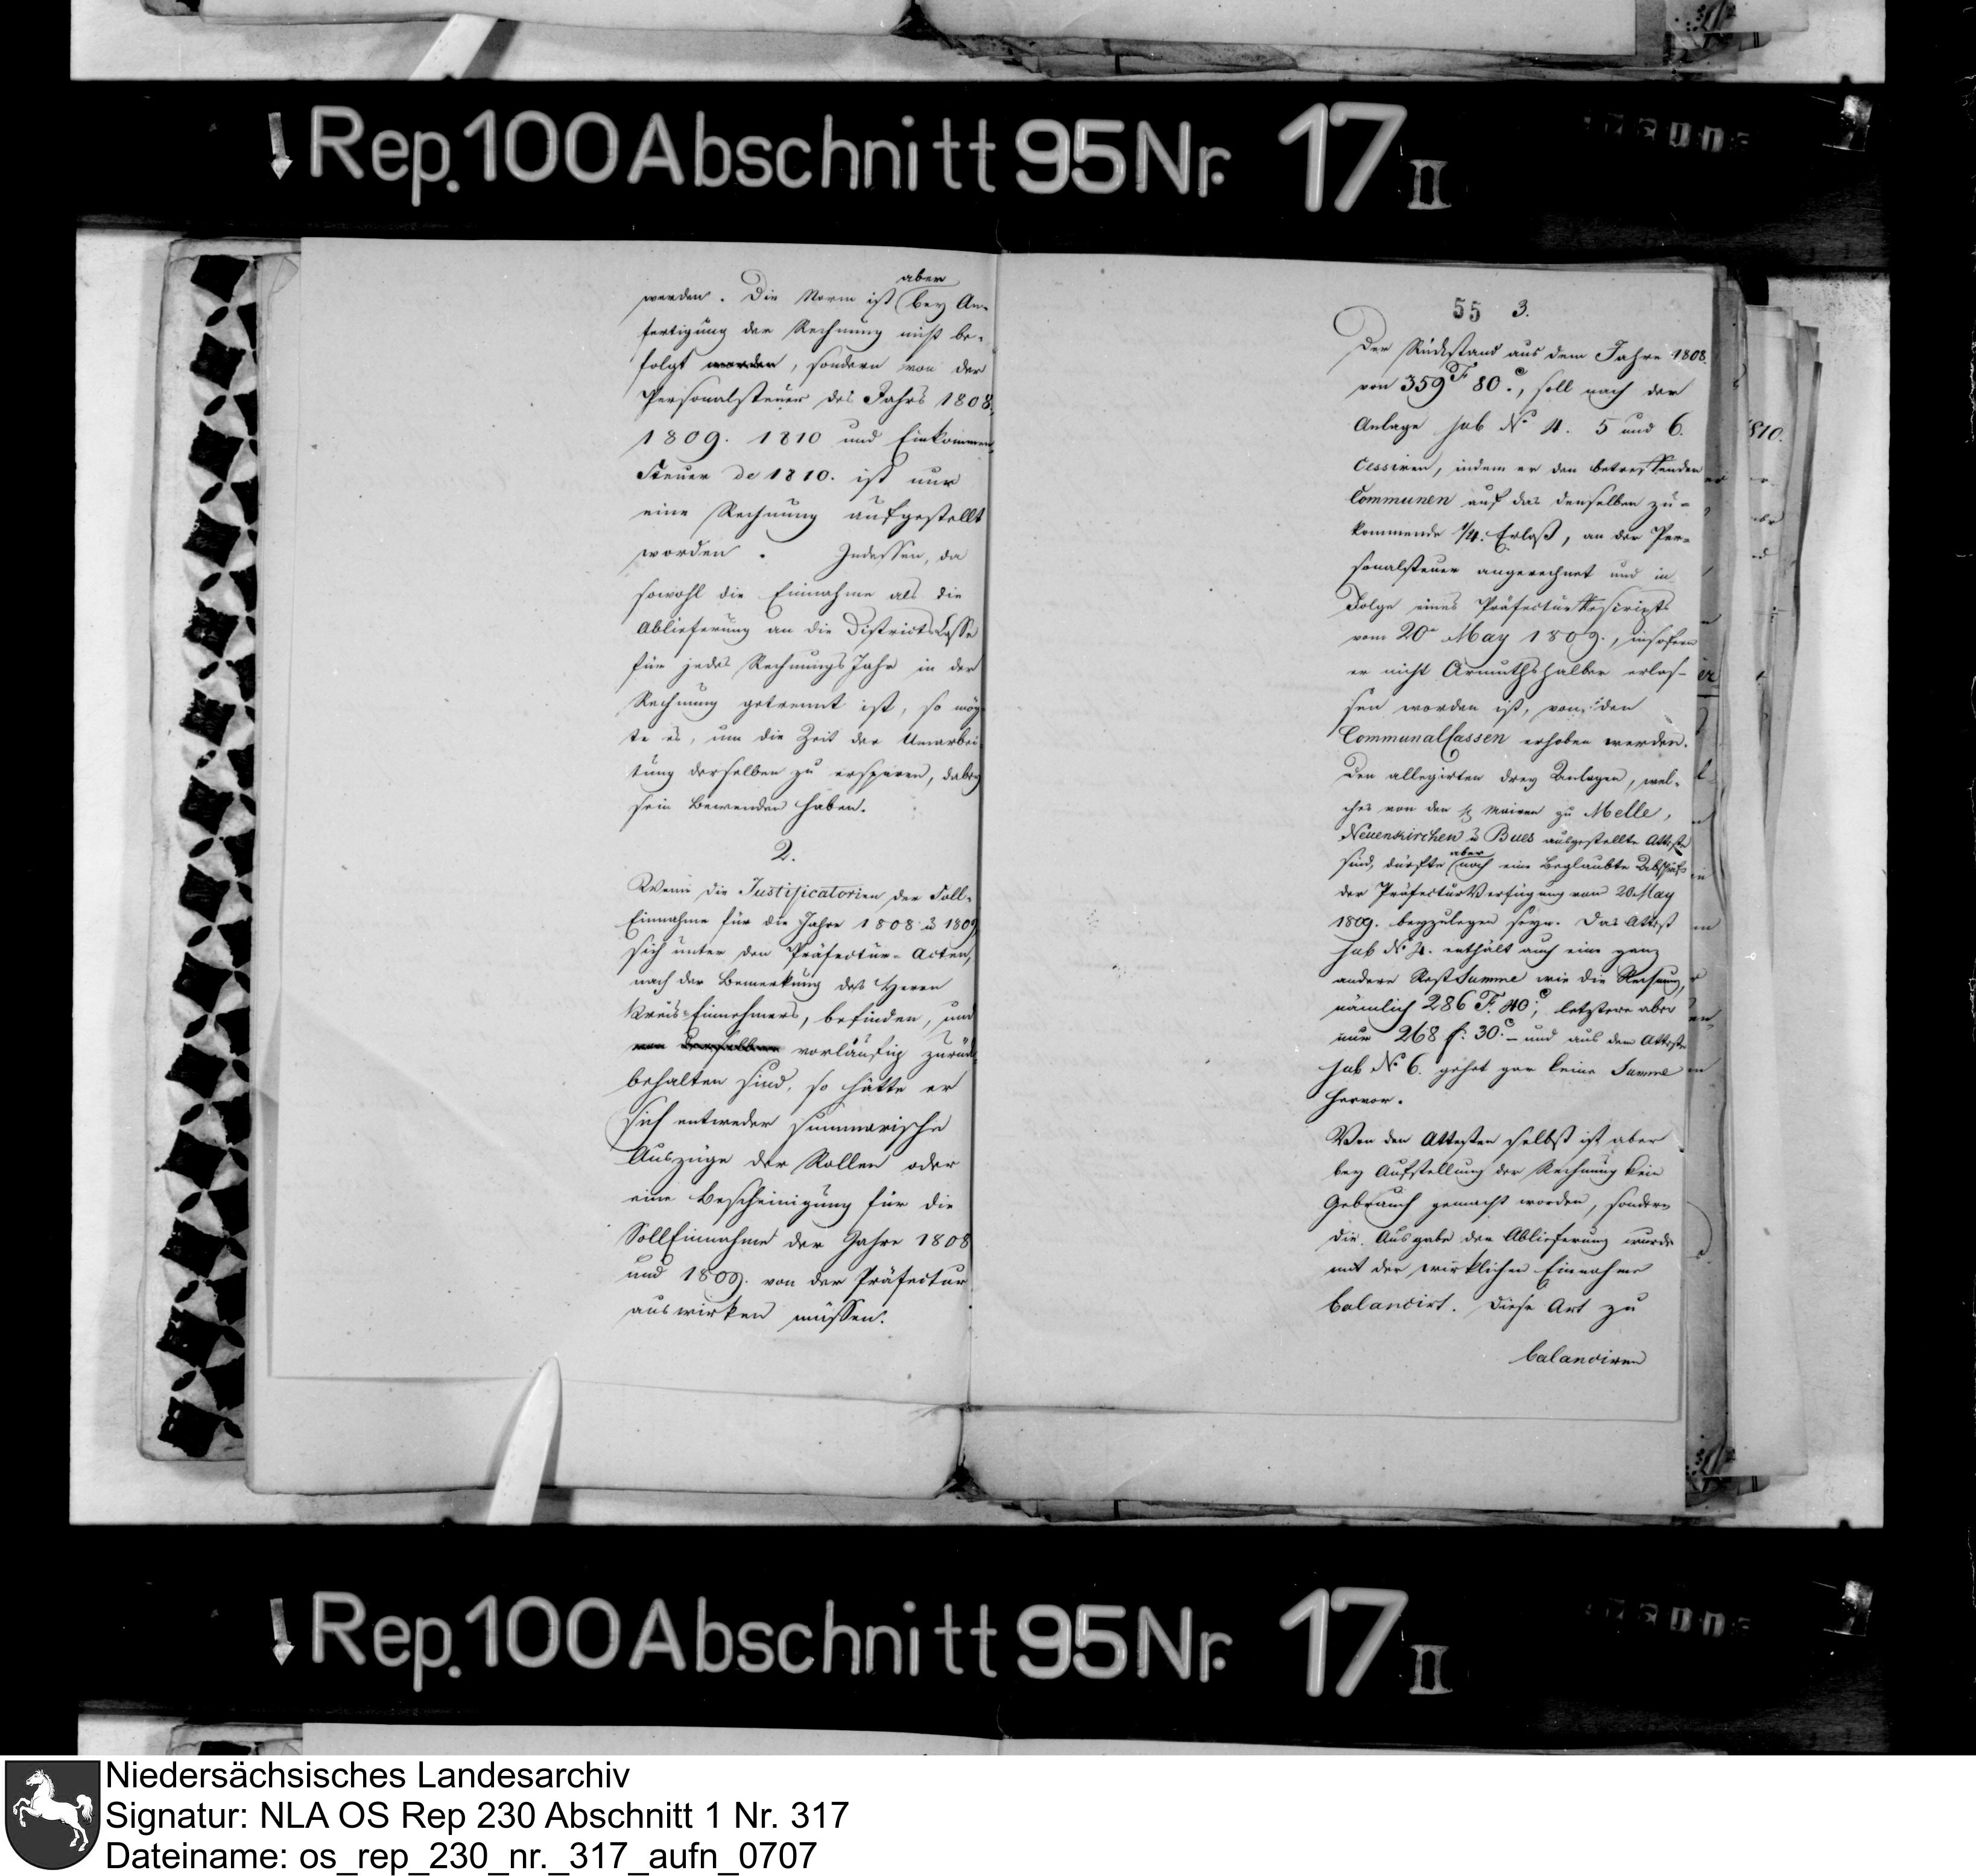 Rep. 100 Abschnitt 95 Nr. 17 II
werden. Die Norm ist aber bey An-
fertigung der Rechnung nicht be-
folgt worden, sondern von der
Personalsteuer des Jahrs 1808.
1809. 1810 und Einkommen
Steuer de 1810. ist nur
eine Rechnung aufgestellt
worden. Indessen, da
sowohl die Einnahme als die
Ablieferung an die Districts Casse
für jedes Rechnungs Jahr in der
Rechnung getrennt ist, so mög-
te es, um die Zeit der Umarbei-
tung derselben zu ersparen, dabey
sein Bewenden haben.
2.
Wenn die Justificatorien der Soll-
Einnahme für die Jahre 1808 u 1809
sich unter den Präfectur-Acten,
nach der Bemerkung des Herrn
Kreis-Einnehmers, befinden, und
von derselben vorläufig zurück
behalten sind, so hätte er
sich entweder summarische
Auszüge der Rollen oder
eine Bescheinigung für die
Soll Einnahme der Jahre 1808
und 1809. von der Präfectur
auswirken müssen.
55 3.
Der Rückstand aus dem Jahre 1808.
von 359 F 80 c., soll nach der
Anlage sub No 4. 5 und 6.
cessiren, indem er den betreffenden
Communen auf das denselben zu-
kommende 1/4. Erlaß, an der Per-
sonalsteuer angerechnet und in
Folge eines Präfectur Rescripts
vom 20n May 1809., insofern
er nicht Armuthshalber erlas-
sen worden ist, von den
Communal Cassen erhoben werden.
Den allegirten drey Anlagen, wel-
ches von den Mairen zu Melle,
Neuenkirchen u Buer ausgestellte Atteste
sind, dürfte aber noch eine beglaubte Abschrift
der Präfectur Verfügung vom 20 May
1809. beyzulegen seyn. Das Attest
sub No 4. enthält auch eine ganz
andere Rest Summe wie die Rechnung,
nämlich 286 F. 40 c; letztere aber
nur 268 f. 30 c. – und aus dem Atteste
sub No 6. gehet gar keine Summe
hervor.
Von den Attesten selbst ist aber
bey Aufstellung der Rechnung kein
Gebrauch gemacht worden, sondern
die Ausgabe der Ablieferung wurde
mit der wirklichen Einnahme
balancirt. Diese Art zu
balanciren
Rep. 100 Abschnitt 95 Nr. 17 II
Niedersächsisches Landesarchiv
Signatur: NLA OS Rep 230 Abschnitt 1 Nr. 317
Dateiname: os_rep_230_nr._317_aufn_0707